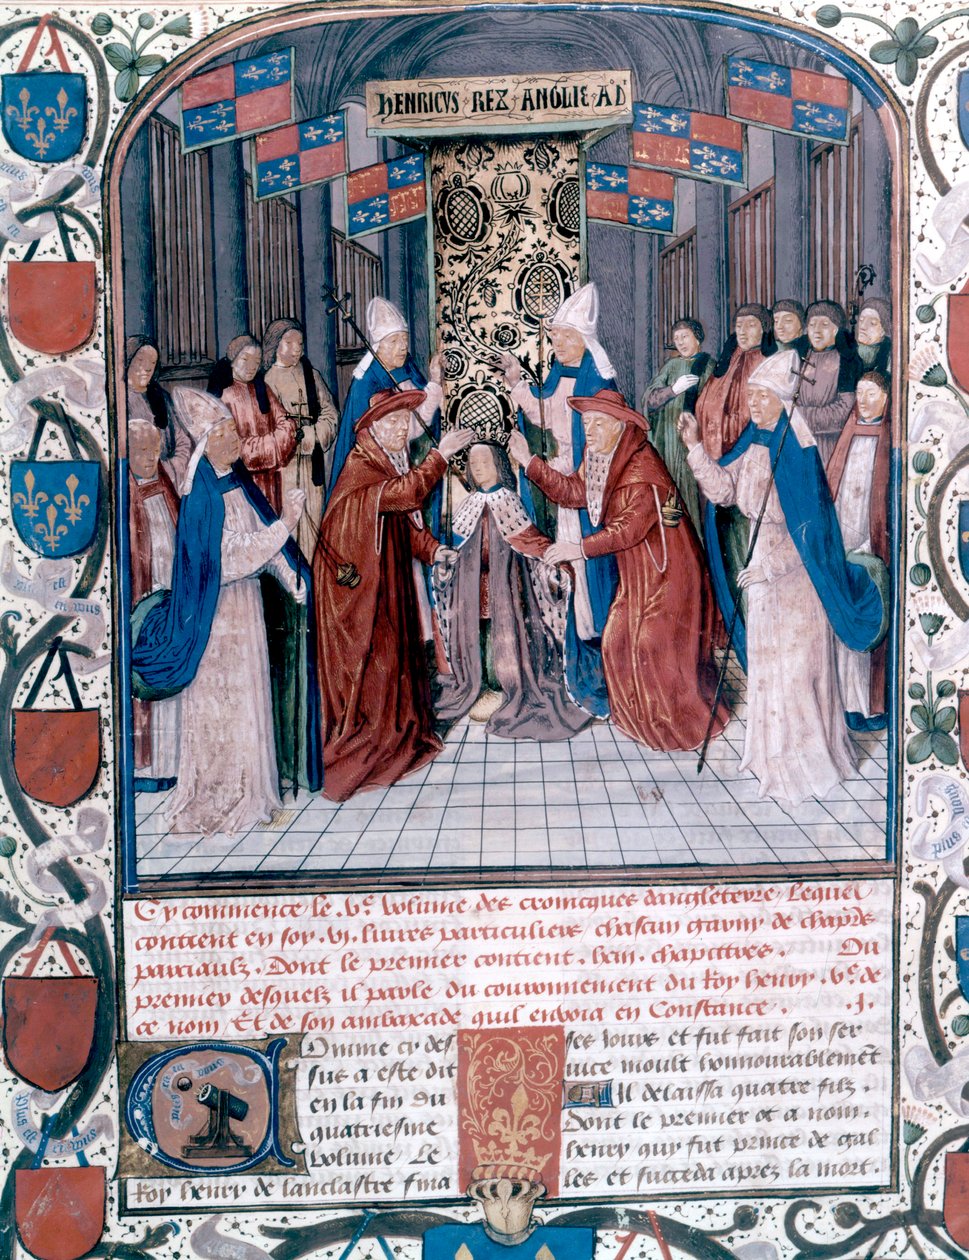 HENRICVS REX ANGLIE AD
Cy commence le .Ve. volume des cronicques dangleterre. Lequel
contient en soy .vi. livres particuliers chascun garny de chappitres
parciaulz. Dont le premier contient .lxvi. chappittres. Du
premier desquelz il parle du couronnement du Roy henry .Ve. de
ce nom Et de son ambaxade quil envoia en Constance . J.
Omme cy des
sus a este dit
en la fin du
quatriesme
volume. Le
Roy henry de lanclastre fina
ses jours et fut fait son ser
uice moult honnourablement
Il delaissa quatre filz.
Dont le premier ot a nom.
henry quy fut prince de gal
les et succeda aprez la mort.
Plus est
en vous